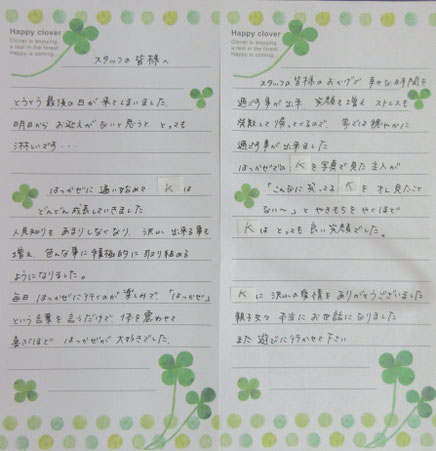 Happy clover
Clover is enjoying
a rest in the forest.
Happy is coming.
スタッフの皆様へ
とうとう最後の日が来てしまいました。
明日からお迎えがないと思うと とっても
淋しいです・・・
ほっかぜに通い始めて K は
どんどん成長していきました
人見知りもあまりしなくなり、沢山出来る事も
増え、色んな事に積極的に取り組める
ようになりました。
毎日 ほっかぜに行くのが楽しみで、「ほっかぜ」
という言葉を言うだけで、体を震わせて
喜ぶほど ほっかぜが大好きでした。
Happy clover
Clover is enjoying
a rest in the forest.
Happy is coming.
スタッフの皆様のおかげで 幸せな時間を
過ごす事が出来 笑顔も増え ストレスも
発散して帰ってくるので、家では穏やかに
過ごす事が出来ました
ほっかぜでの K を写真で見た主人が
「こんなに笑ってる K を オレ見たこと
ない〜」とやきもちをやくほど
K はとっても良い笑顔でした。
K に沢山の愛情をありがとうございました
親子共で本当にお世話になりました
また遊びに行かせて下さい